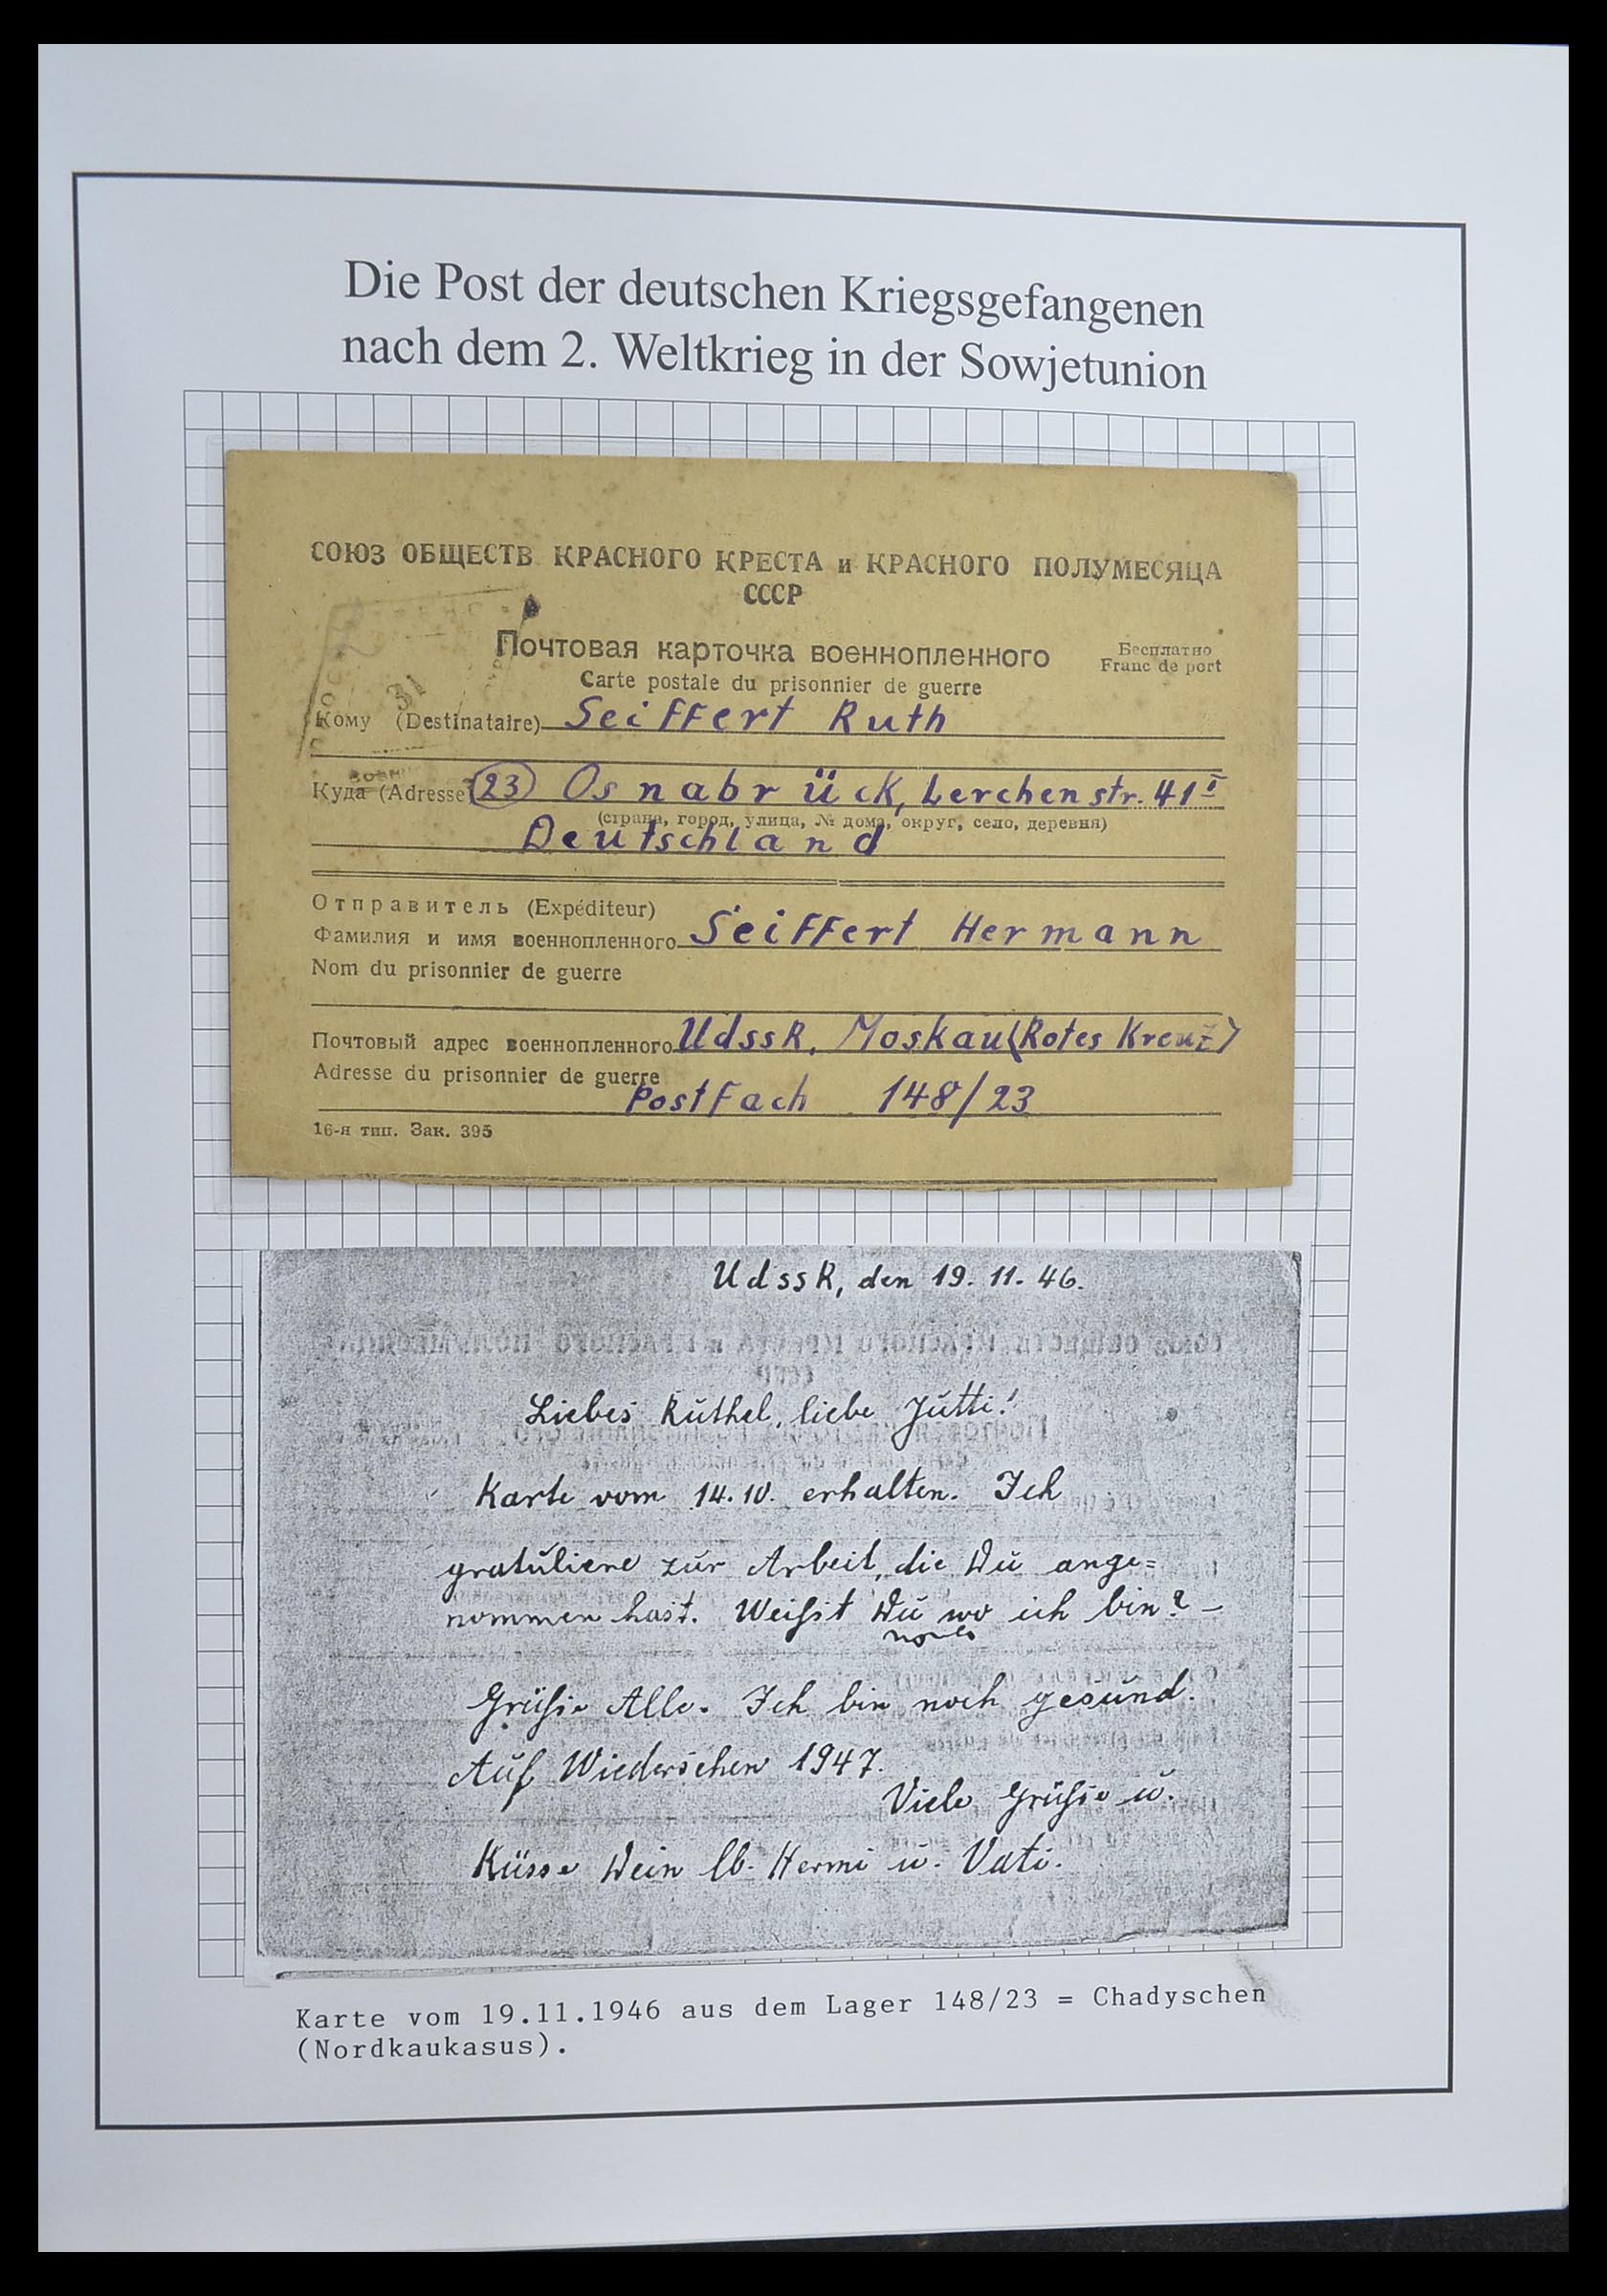 Die Post der deutschen Kriegsgefangenen
nach dem 2. Weltkrieg in der Sowjetunion
СОЮЗ ОБЩЕСТВ КРАСНОГО КРЕСТА и КРАСНОГО ПОЛУМЕСЯЦА
СССР
Почтовая карточка военнопленного
Бесплатно
Franc de port
Carte postale du prisonnier de guerre
Кому (Destinataire) Seiffert Ruth
Куда (Adresse) 23 Osnabrück, Lerchenstr. 41 I
(страна, город, улица, № дома, округ, село, деревня)
Deutschland
Отправитель (Expéditeur)
Фамилия и имя военнопленного Seiffert Hermann
Nom du prisonnier de guerre
Почтовый адрес военнопленного UdssR, Moskau (Rotes Kreuz)
Adresse du prisonnier de guerre
Postfach 148/23
16-я тип. Зак. 395
UdssR, den 19. 11. 46.
Liebes Ruthel, liebe Jutti!
Karte vom 14.10. erhalten. Ich
gratuliere zur Arbeit, die Du ange=
nommen hast. Weißt Du wo ich bin? –
Grüße Alle. Ich bin noch gesund.
Auf Wiedersehen 1947.
Viele Grüße u.
Küsse Dein lb. Hermi u. Vati.
Karte vom 19.11.1946 aus dem Lager 148/23 = Chadyschen
(Nordkaukasus).